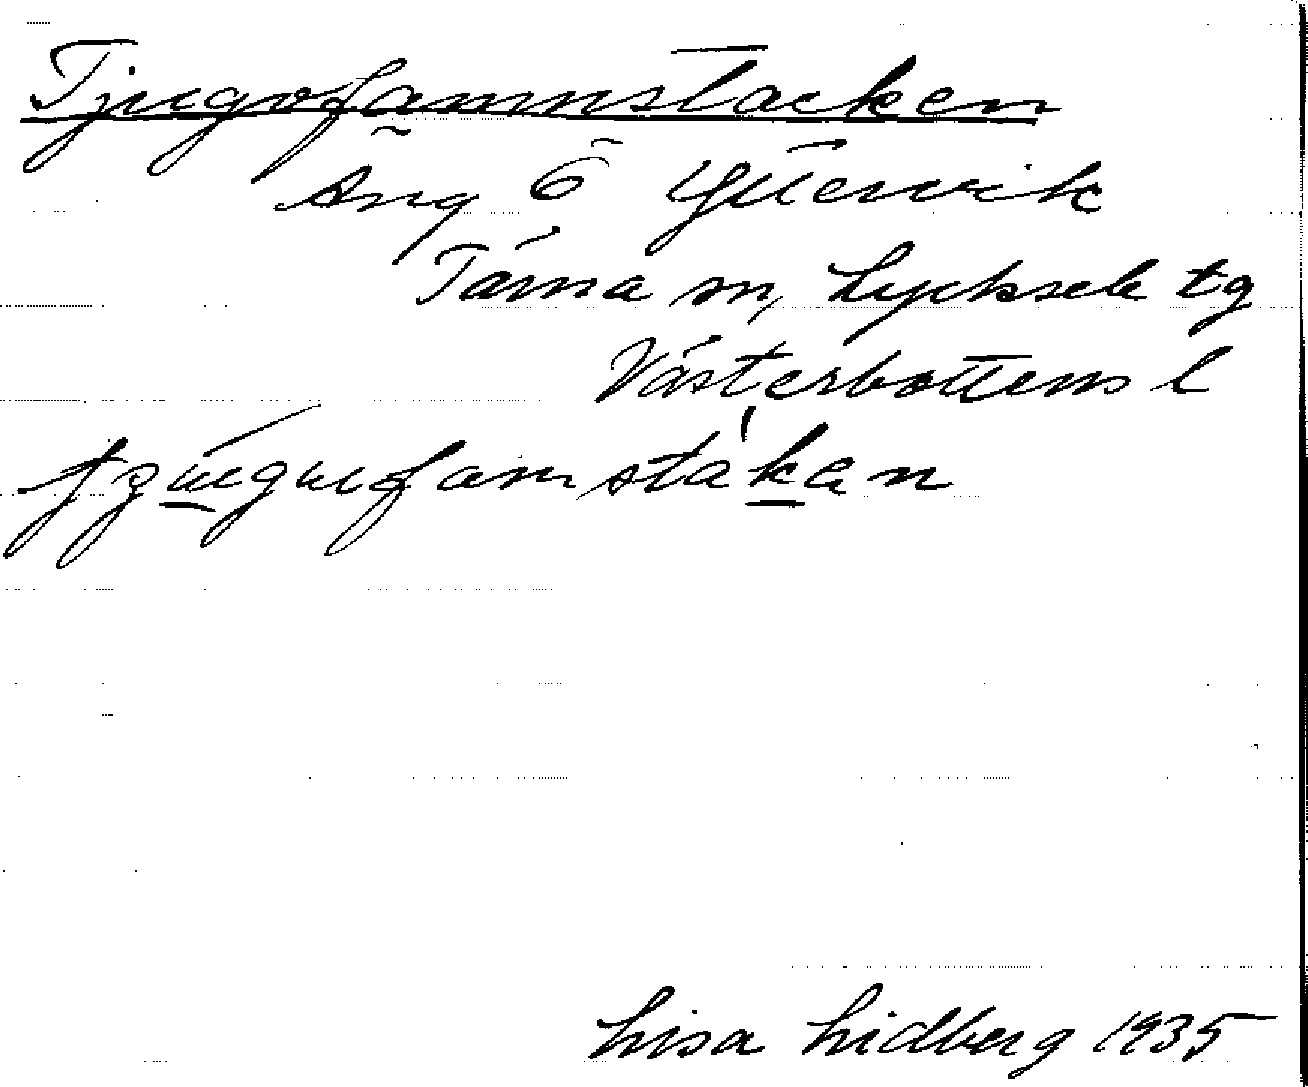 Tjugofamnstacken
Äng Ö Yttervik
Tärna sn, Lycksele tg
Västerbottens l
Lisa Lidberg 1935